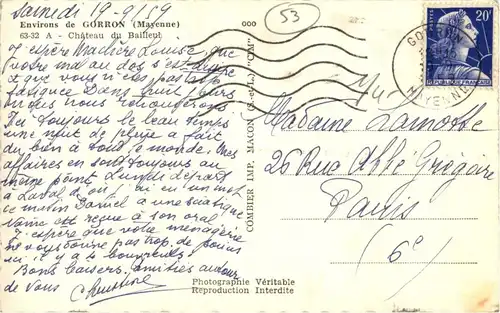 Samedi 19-9/59
Environs de GORRON (Mayenne)
63-32 A - Château du Bailleul
J'espère Madame Louise, que
votre mal au dos s'est
et que vous n'êtes pas trop
fatiguée Dans huit jours
nous nous
Ici toujours le beau temps
une nuit de pluie a fait
du bien à tout le monde. Mes
affaires en sont toujours au
même point Lundi départ
à Laval d'où j'ai eu un mot
ce matin Daniel a une sciatique
est reçue à son oral
J'espère que votre ménagerie
ne vous donne pas trop de
ici il y a 4
Bons baisers, amitiés autour
de vous Christine
COMBIER IMP. MACON (S.-et-L.) "CIM"
Photographie Véritable
Reproduction Interdite
53
GORRON
MAYENNE
20F
REPUBLIQUE FRANÇAISE
Madame Lamotte
26 Rue Abbé Grégoire
Paris
(6e)